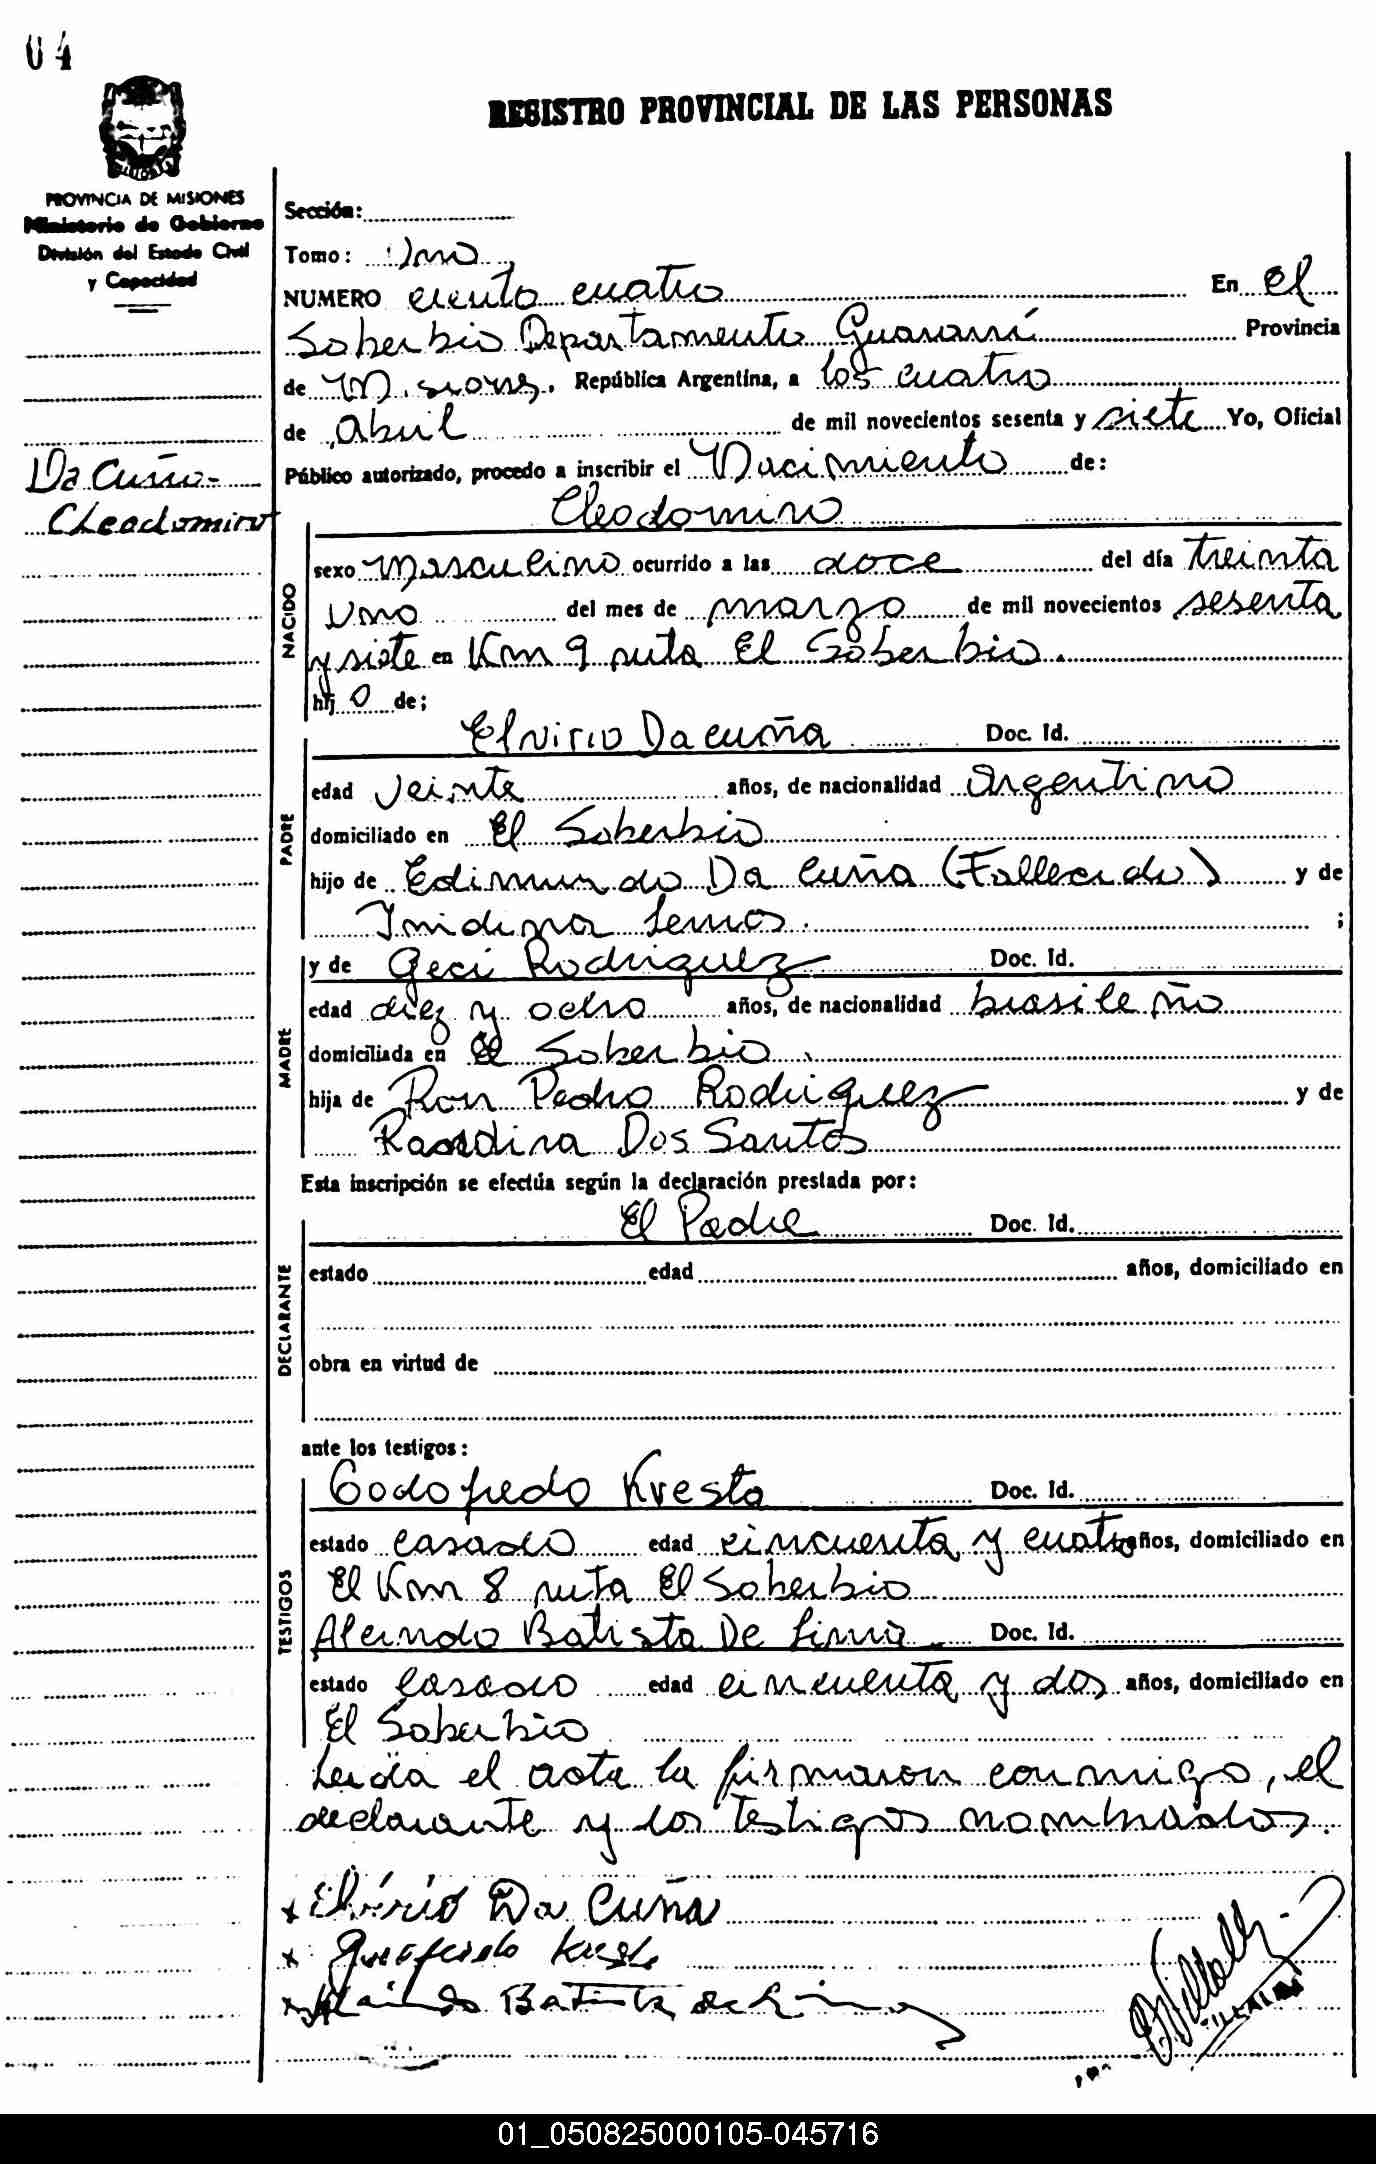 04
REGISTRO PROVINCIAL DE LAS PERSONAS
PROVINCIA DE MISIONES
Ministerio de Gobierno
División del Estado Civil
y Capacidad
Sección:
Tomo: Uno
NUMERO ciento cuatro En El
Soberbio Departamento Guaraní Provincia
de Misiones. República Argentina, a los cuatro
de Abril de mil novecientos sesenta y siete Yo, Oficial
Público autorizado, procedo a inscribir el Nacimiento de:
Da Cuña-
Cleodomiro
Cleodomiro
NACIDO
sexo Masculino ocurrido a las doce del día treinta
Uno del mes de marzo de mil novecientos sesenta
y siete en Km 9 ruta El Soberbio.
hij o de;
PADRE
Elvirio Da cuña Doc. Id.
edad Veinte años, de nacionalidad Argentino
domiciliado en El Soberbio
hijo de Edimundo Da Cuña (Fallecido) y de
Lemos. ;
MADRE
y de Geci Rodriguez Doc. Id.
edad diez y ocho años, de nacionalidad brasileño
domiciliada en El Soberbio
hija de Pedro Rodriguez y de
Dos Santos
Esta inscripción se efectúa según la declaración prestada por:
DECLARANTE
El Padre Doc. Id.
estado edad años, domiciliado en
obra en virtud de
ante los testigos:
TESTIGOS
Godofredo Kresta Doc. Id.
estado casado edad cincuenta y cuatro años, domiciliado en
El Km 8 ruta El Soberbio
Alcindo Batista De Lima Doc. Id.
estado casado edad cincuenta y dos años, domiciliado en
El Soberbio
Leida el acta la firmaron conmigo, el
declarante y los testigos nombrados.
x Elvirio Da Cuña
x
x Batista de Lima
01_050825000105-045716